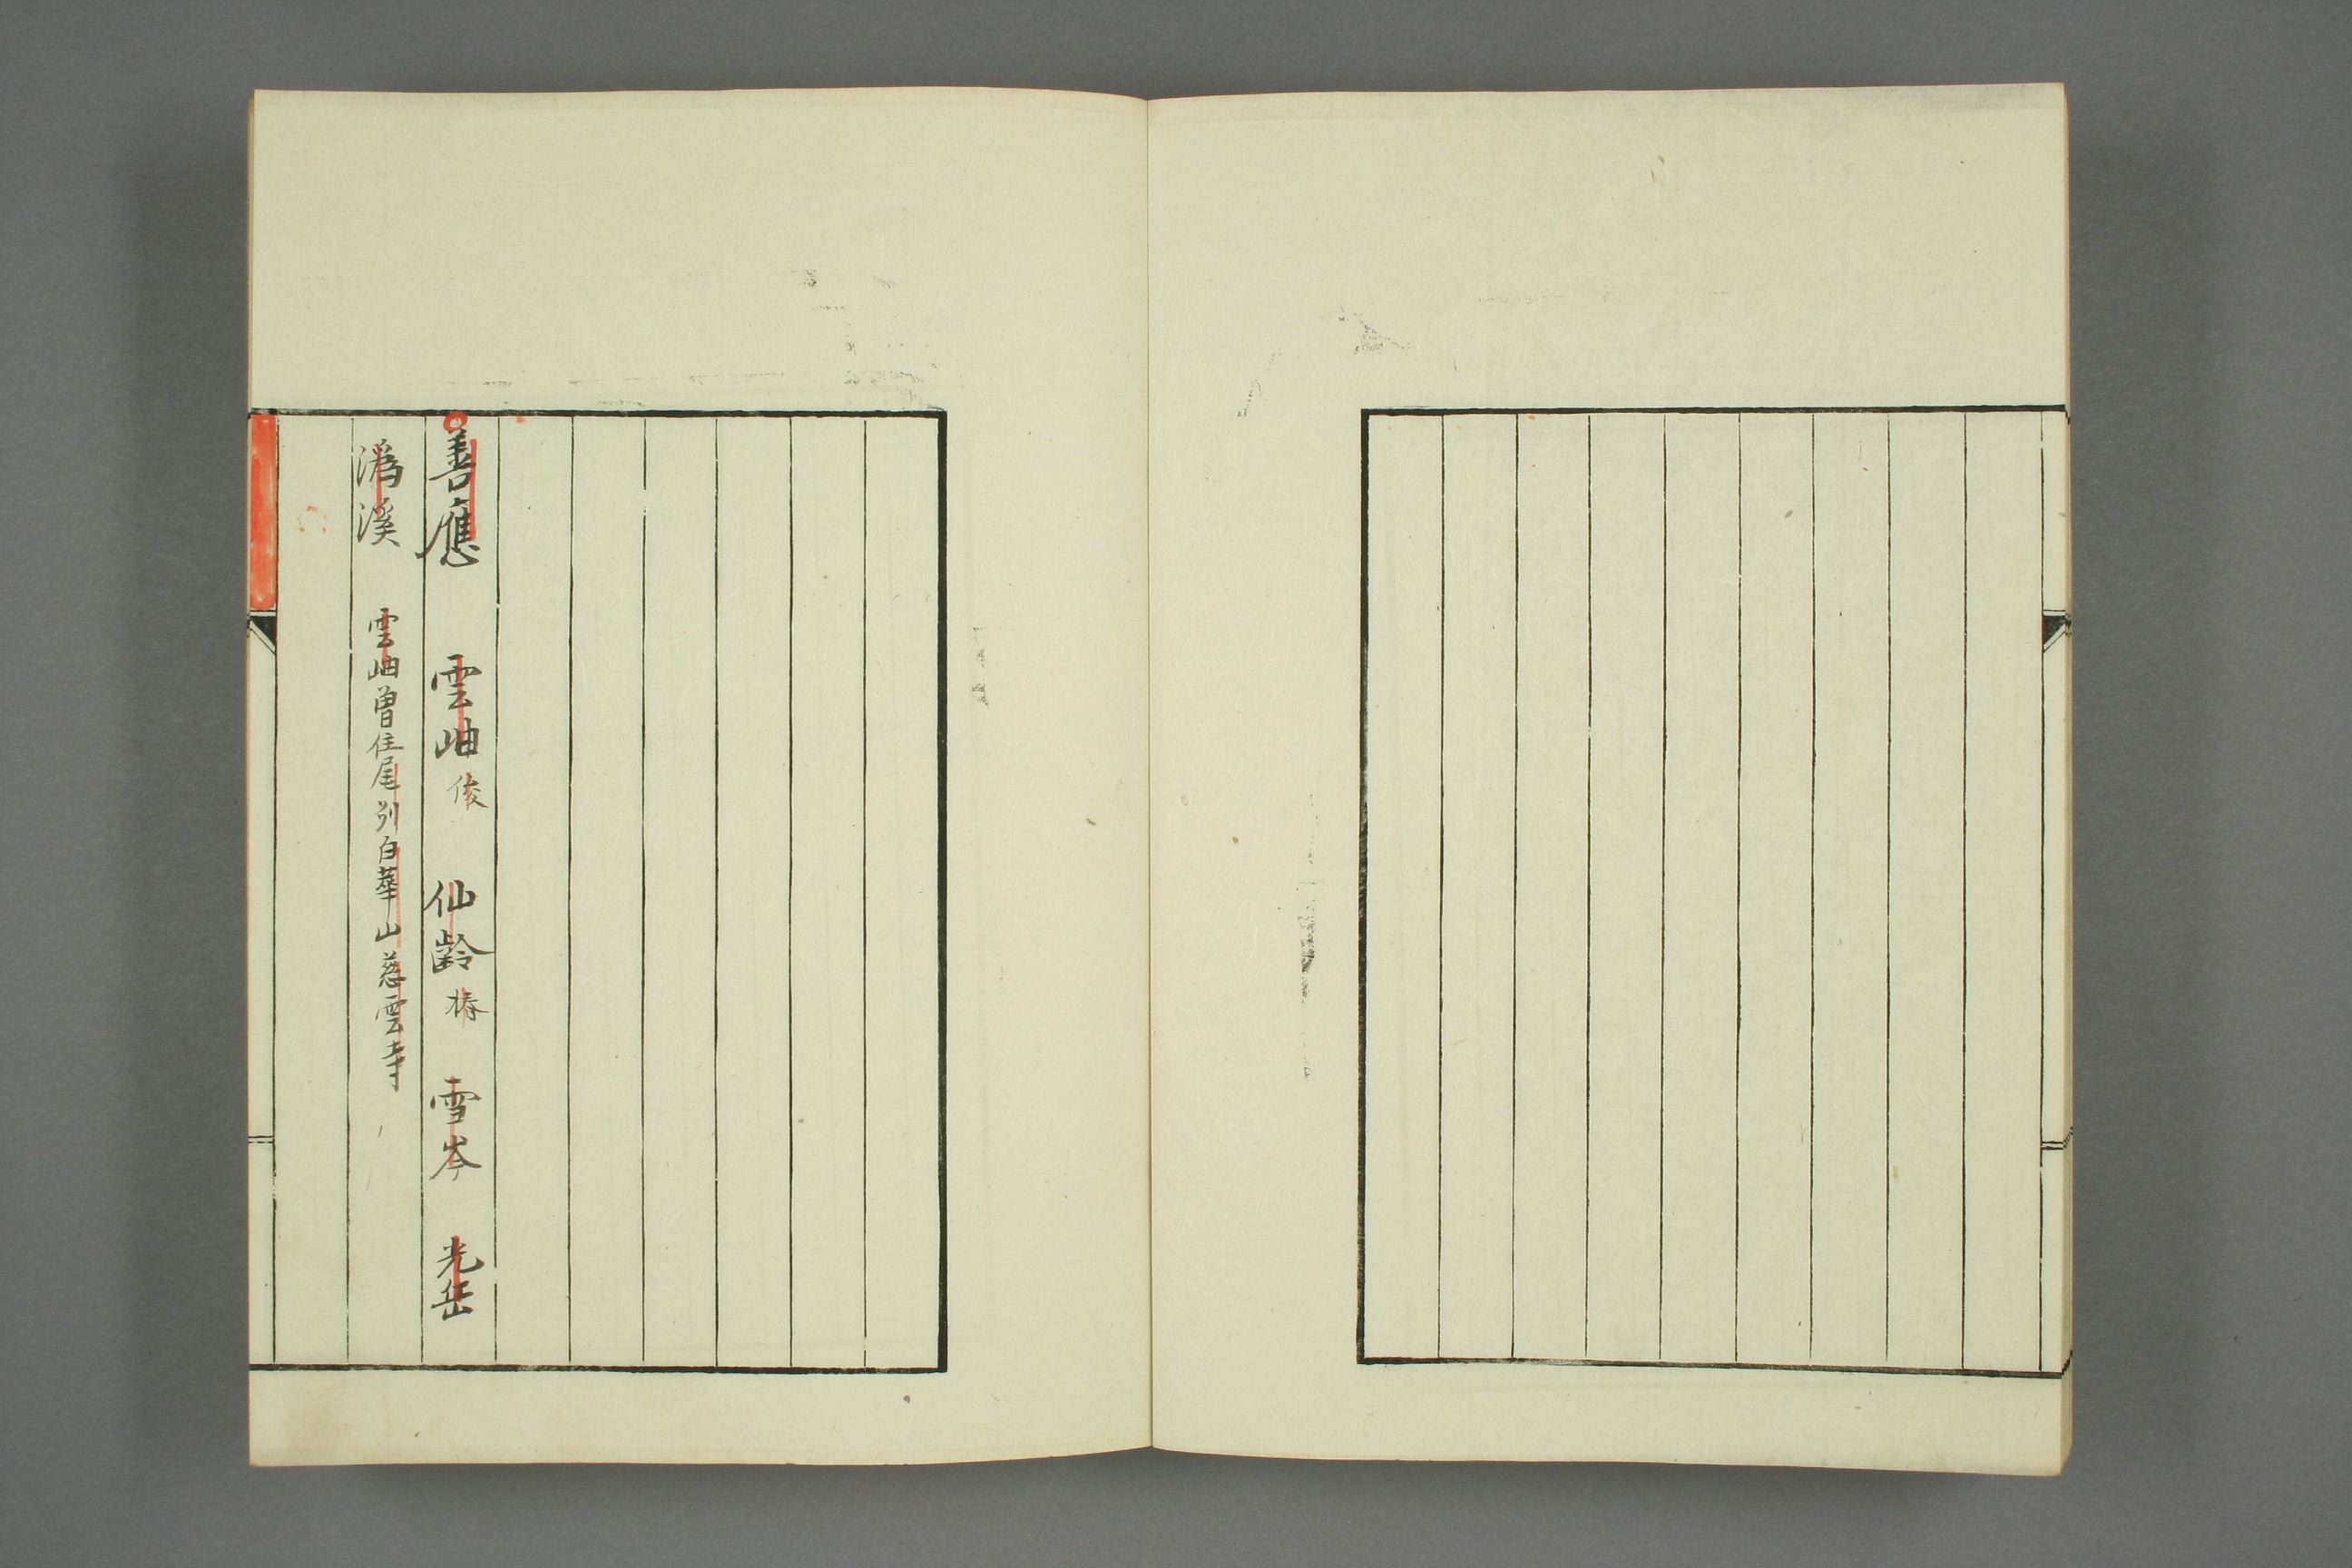 善應　雲岫俊　仙齡椿　雪岑　光岳
潙溪　雲岫曽住尾州白華山慈雲寺